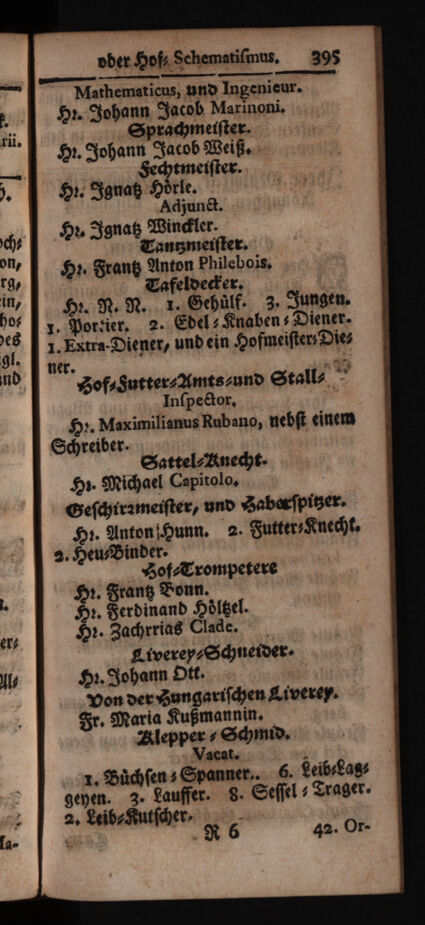 oder Hof⸗ Schematiſmus. 395
Mathematicus, und Ingenieur.
Hr. Johann Jacob Marinoni.
Sprachmeiſter.
Hr. Johann Jacob Weiß.
Fechtmeiſter.
Hr. Ignatz Hörle.
Adjunct.
Hr. Ignatz Winckler.
Tantzmeiſter.
Hr. Frantz Anton Philebois.
Tafeldecker.
Hr. N. N. 1. Gehülf. 3. Jungen.
1. Portier. 2. Edel⸗Knaben⸗Diener.
1. Extra-Diener, und ein Hofmeiſter⸗Die⸗
ner.
Hof⸗Futter⸗Amts⸗und Stall⸗
Inſpector.
Hr. Maximilianus Rubano, nebſt einem
Schreiber.
Sattel⸗Knecht.
Hr. Michael Capitolo.
Geſchirrmeiſter, und Haberſpitzer.
Hr. Anton Hunn. 2. Futter⸗Knecht.
2. Heu⸗Binder.
Hof⸗Trompetere
Hr. Frantz Bonn.
Hr. Ferdinand Höltzel.
Hr. Zachrrias Clade.
Liverey⸗Schneider.
Hr. Johann Ott.
Von der Hungariſchen Liverey.
Fr. Maria Kußmannin.
Klepper⸗Schmid.
Vacat.
1. Büchſen⸗Spanner.. 6. Leib⸗Lag⸗
geyen. 3. Lauffer. 8. Seſſel⸗Trager.
2. Leib⸗Kutſcher.
R 6 42. Or-